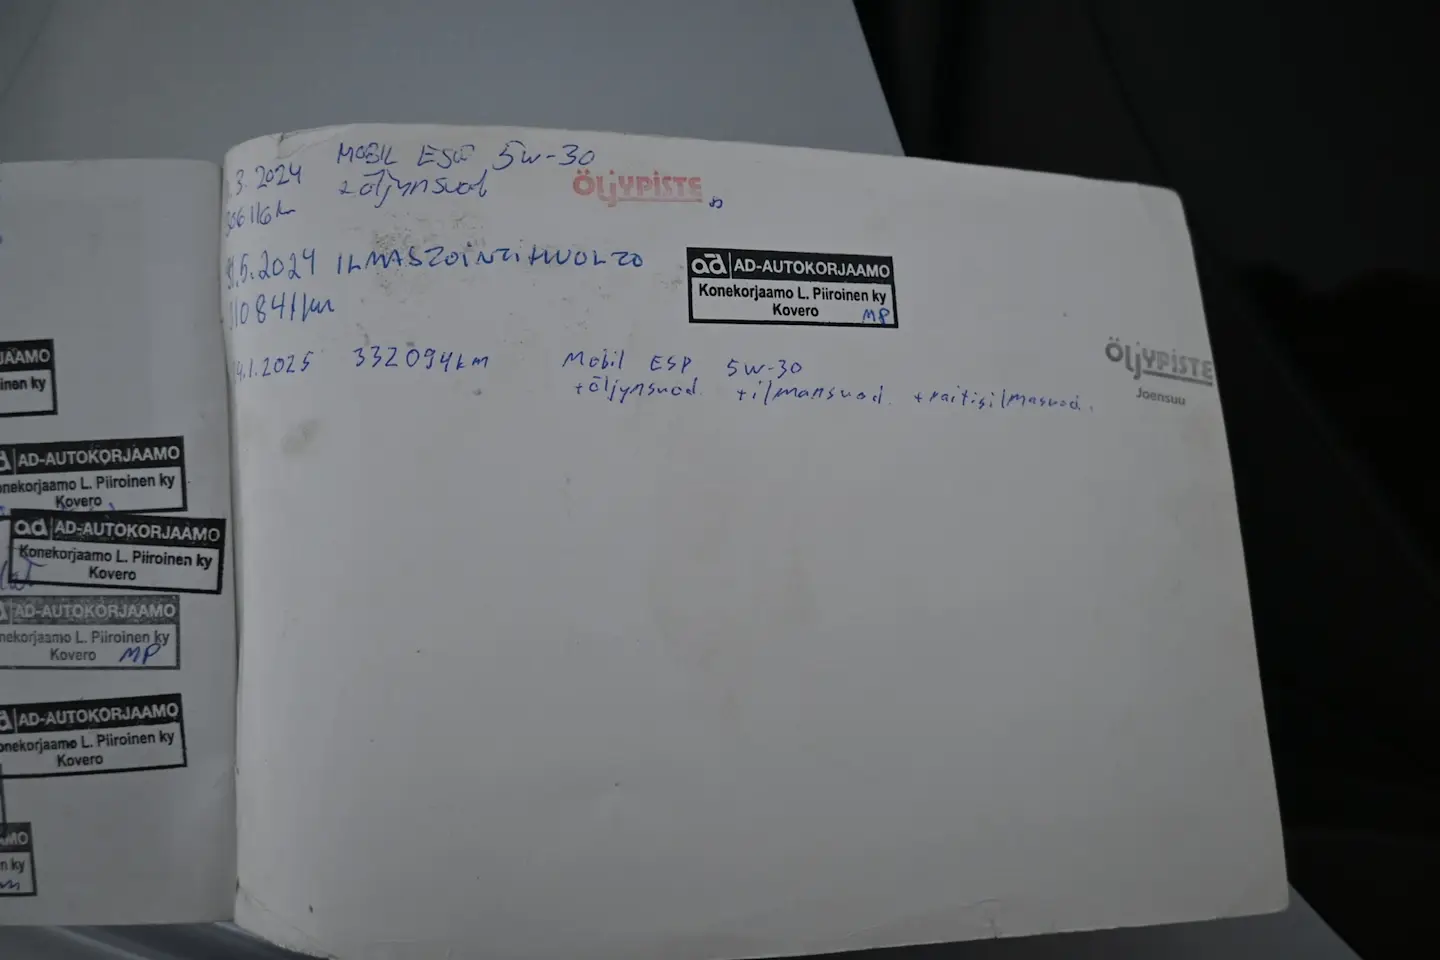 JAAMO
inen ky
AD-AUTOKORJAAMO
onekorjaamo L. Piiroinen ky
Kovero
ad AD-AUTOKORJAAMO
Konekorjaamo L. Piiroinen ky
Kovero
AD-AUTOKORJAAMO
nekorjaamo L. Piiroinen ky
Kovero MP
AD-AUTOKORJAAMO
onekorjaamo L. Piiroinen ky
Kovero
AMO
n ky
.3.2024 MOBIL ESP 5W-30
+ öljynsuod ÖLJYPISTE
.5.2024 ILMASTOINTIHUOLTO
10841km
ad AD-AUTOKORJAAMO
Konekorjaamo L. Piiroinen ky
Kovero MP
4.1.2025 332094km Mobil ESP 5W-30
+öljynsuod. +ilmansuod. +raitisilmasuod.
ÖLJYPISTE
Joensuu